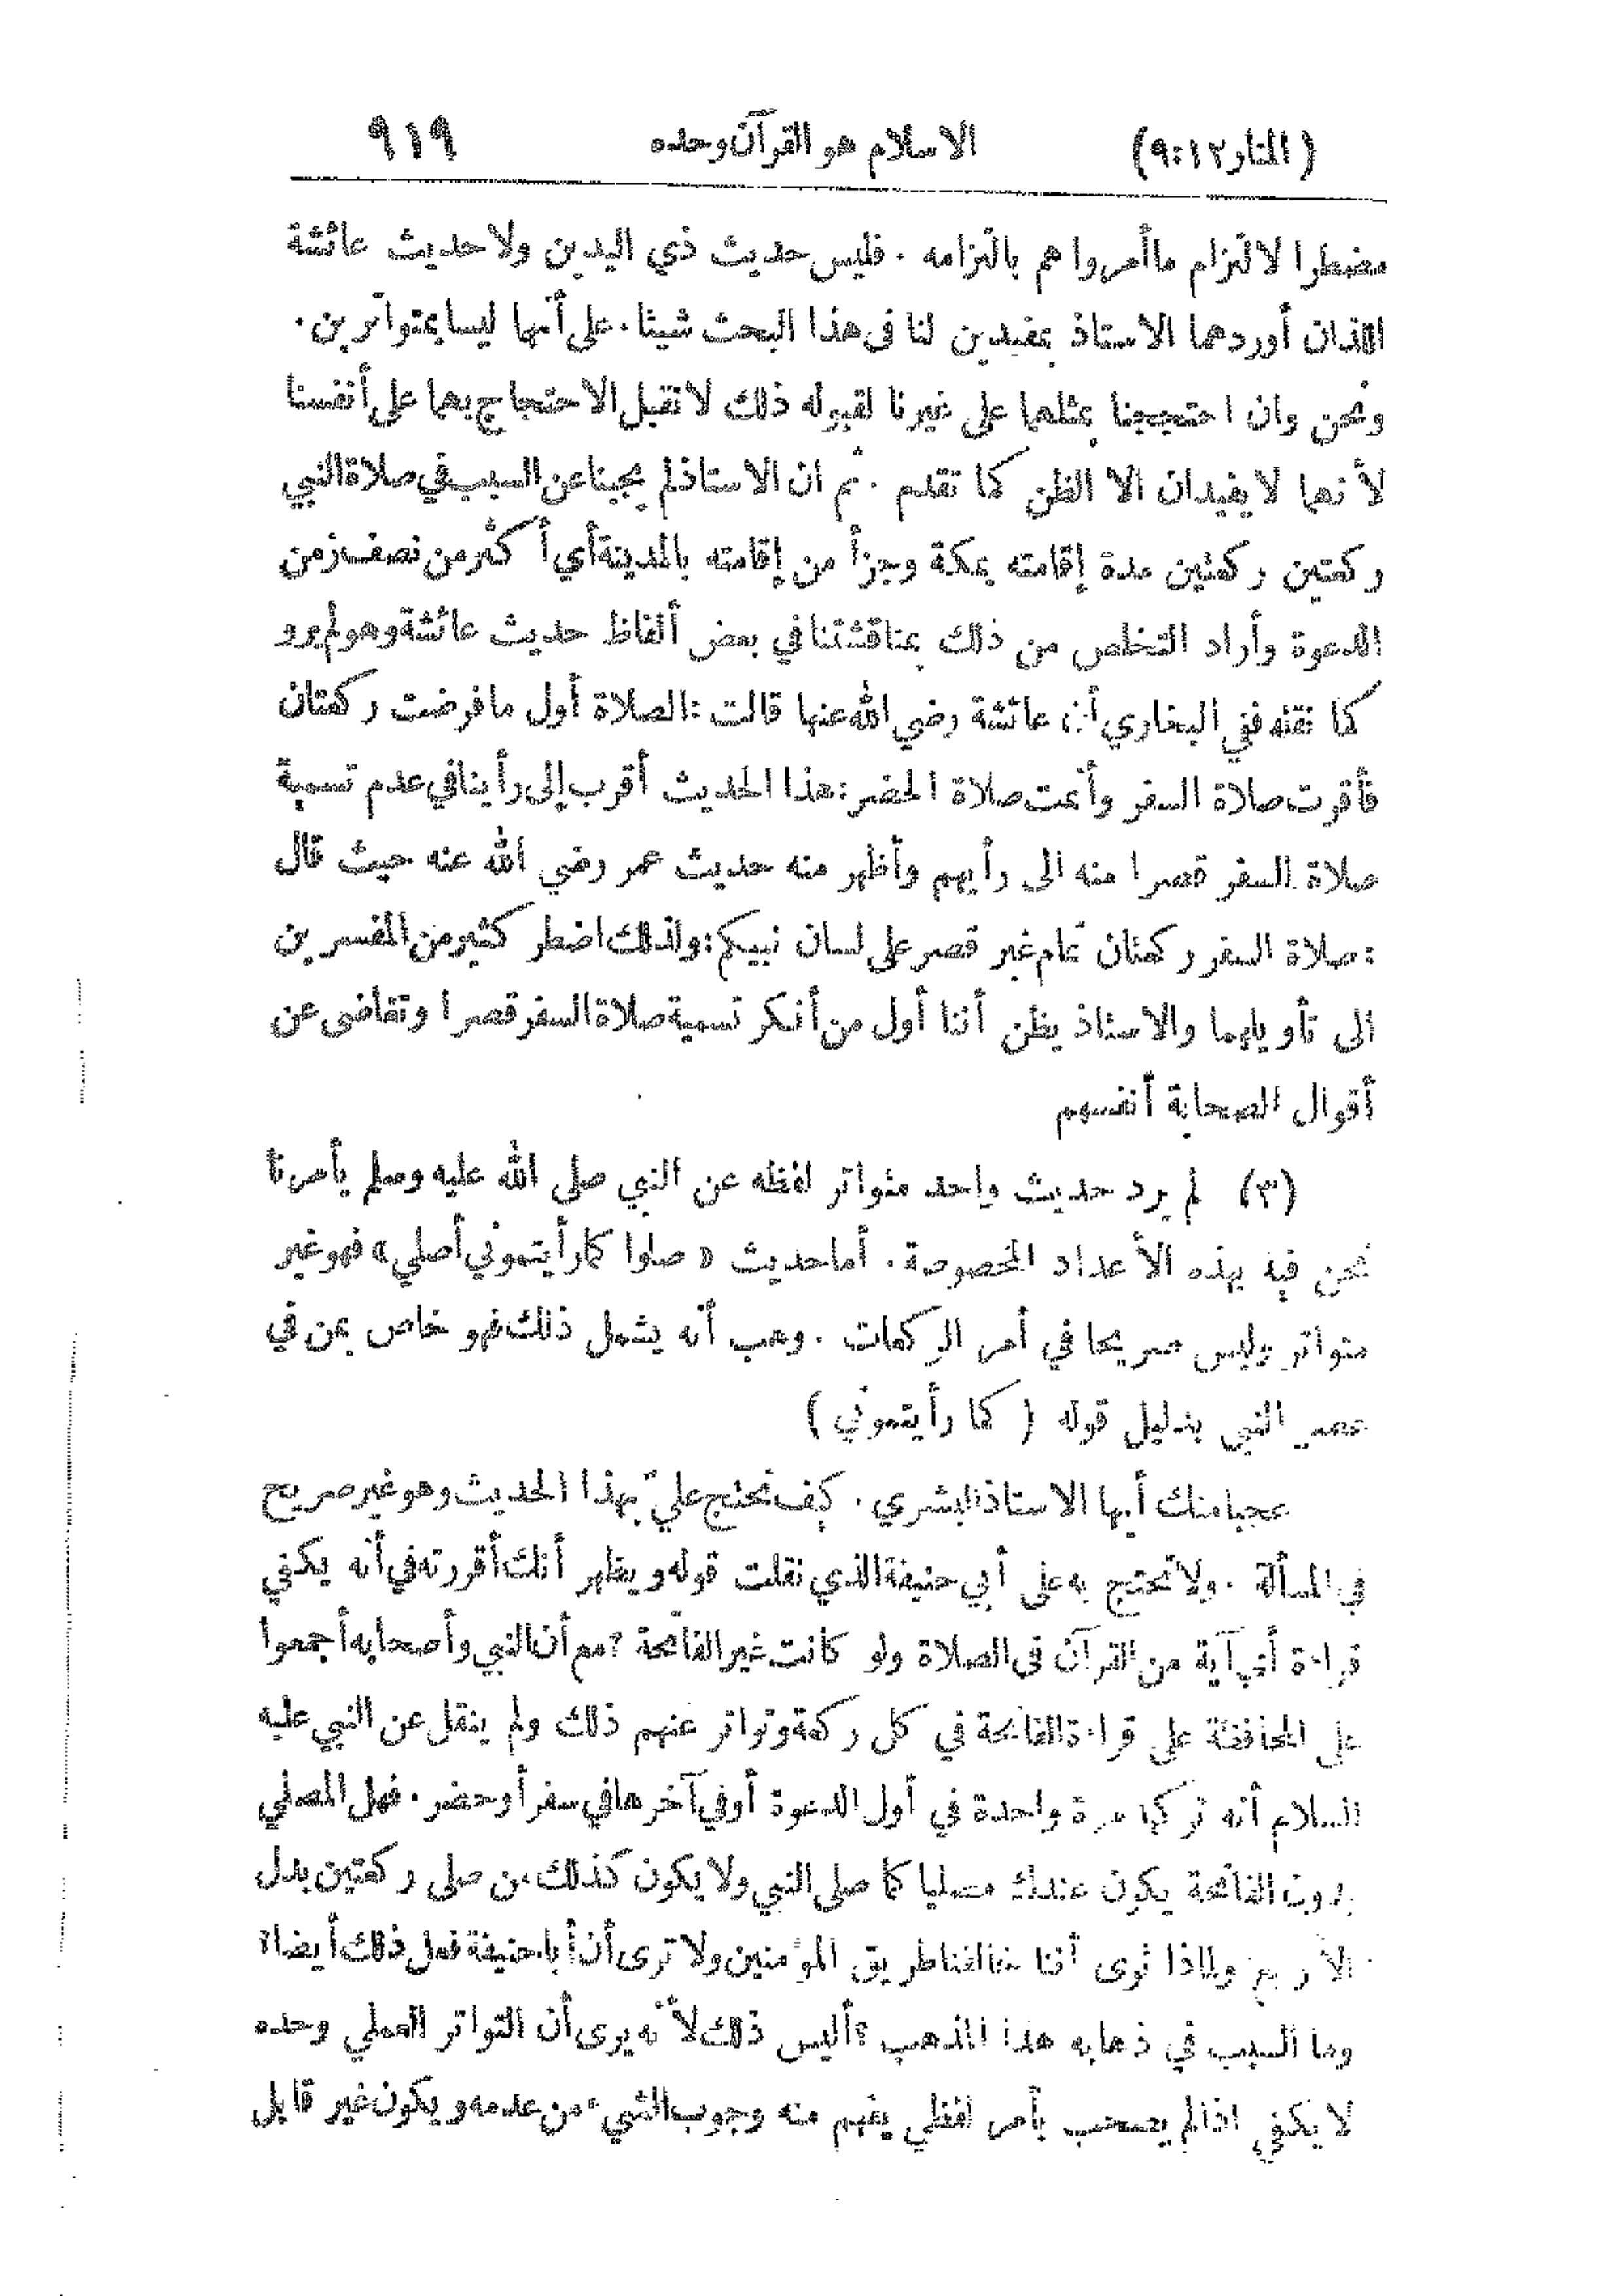 (المنار ٩:١٢) الاسلام هو القرآن وحده ٩١٩
مضطرا لالتزام ماأمروا هم بالتزامه . فليس حديث ذي اليدين ولا حديث عائشة
اللذان أوردهما الاستاذ بمفيدين لنا فى هذا البحث شيئا . على أنهما ليسا بمتواترين .
ونحن وان احتججنا بمثلهما على غيرنا لقبوله ذلك لا نقبل الاحتجاج بهما على أنفسنا
لأنهما لا يفيدان الا الظن كما تقدم . ثم ان الاستاذ لم يجبنا عن السبب في صلاة النبي
ركعتين ركعتين مدة إقامته بمكة وجزأ من إقامته بالمدينة أي أكثر من نصف زمن
الدعوة وأراد التخلص من ذلك بمناقشتنا في بعض ألفاظ حديث عائشة وهو لم يرو
كما نقله ففي البخاري أن عائشة رضي الله عنها قالت : الصلاة أول ما فرضت ركعتان
فأقرت صلاة السفر وأتمت صلاة الحضر : هذا الحديث أقرب إلى رأينا في عدم تسمية
صلاة السفر قصرا منه الى رأيهم وأظهر منه حديث عمر رضي الله عنه حيث قال
: صلاة السفر ركعتان تمام غير قصر على لسان نبيكم : ولذلك اضطر كثير من المفسرين
الى تأويلهما والاستاذ يظن أننا أول من أنكر تسمية صلاة السفر قصرا وتغاضى عن
أقوال الصحابة أنفسهم
(٣) لم يرد حديث واحد متواتر لفظه عن النبي صلى الله عليه وسلم يأمرنا
نحن فيه بهذه الأعداد المخصوصة . أما حديث « صلوا كما رأيتموني أصلي » فهو غير
متواتر وليس صريحا في أمر الركعات . وهب أنه يشمل ذلك فهو خاص بمن في
عصر النبي بدليل قوله ( كما رأيتموني )
عجبا منك أيها الاستاذ البشري . كيف تحتج عليّ بهذا الحديث وهو غير صريح
في المسألة . ولا تحتج به على أبي حنيفة الذي نقلت قوله ويظهر أنك أقررته في أنه يكفي
قراءة أي آية من القرآن فى الصلاة ولو كانت غير الفاتحة ؟ مع أن النبي وأصحابه أجمعوا
على المحافظة على قراءة الفاتحة في كل ركعة وتواتر عنهم ذلك ولم ينقل عن النبي عليه
السلام أنه تركها مرة واحدة في أول الدعوة أو في آخرها في سفر أو حضر . فهل المصلي
بدون الفاتحة يكون عندك مصليا كما صلى النبي ولا يكون كذلك من صلى ركعتين بدل
الأربع ولماذا ترى أننا خالفنا طريق المؤمنين ولا ترى أن أبا حنيفة فعل ذلك أيضا؟
وما السبب في ذهابه هذا المذهب ؟ أليس ذلك لأنه يرى أن التواتر العملي وحده
لا يكفي اذا لم يصحب بأمر لفظي يفهم منه وجوب الشيء من عدمه ويكون غير قابل